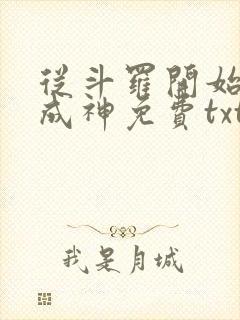 從斗羅開始
成神免費txt
我是月城